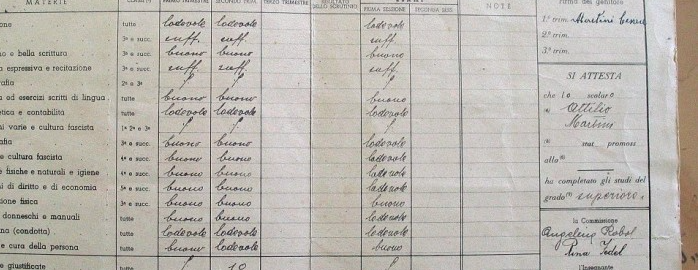 MATERIE CLASSI PRIMO TRIMESTRE SECONDO TRIM. TERZO TRIMESTRE RISULTATO DELLO SCRUTINIO PRIMA SESSIONE SECONDA SESS. NOTE
tutte lodevole lodevole lodevole
3ª e succ. suff. suff. suff.
no e bella scrittura 3ª e succ. buono buono buono
a espressiva e recitazione 3ª e succ. suff. suff. suff.
rafia 2ª e 3ª
a ed esercizi scritti di lingua tutte buono buono buono
etica e contabilità tutte lodevole lodevole lodevole
ni varie e cultura fascista 1ª 2ª e 3ª
rafia 3ª e succ. buono buono lodevole
e cultura fascista 4ª e succ. buono buono lodevole
e fisiche e naturali e igiene 4ª e succ. buono buono lodevole
ni di diritto e di economia 5ª e succ. buono buono lodevole
ione fisica 3ª e succ. buono buono buono
donneschi e manuali tutte buono buono lodevole
ina (condotta) tutte lodevole lodevole lodevole
e cura della persona tutte buono lodevole buono
e giustificate tutte 10
Firma del genitore
1° trim. Martini
2° trim.
3° trim.
SI ATTESTA
che lo scolaro
Attilio
Martini
stat promoss
alla
ha completato gli studi del
grado superiore
la Commissione
Angelena Robol
Pina Fedel
l'Insegnante